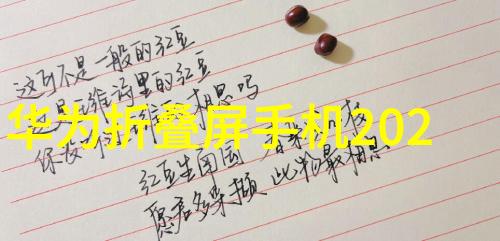 这可不是一般的红豆
这是 维诗里的红豆
华为折叠屏手机202
你 相思吗
红豆生南国 春来
愿君多采撷 此物最相思